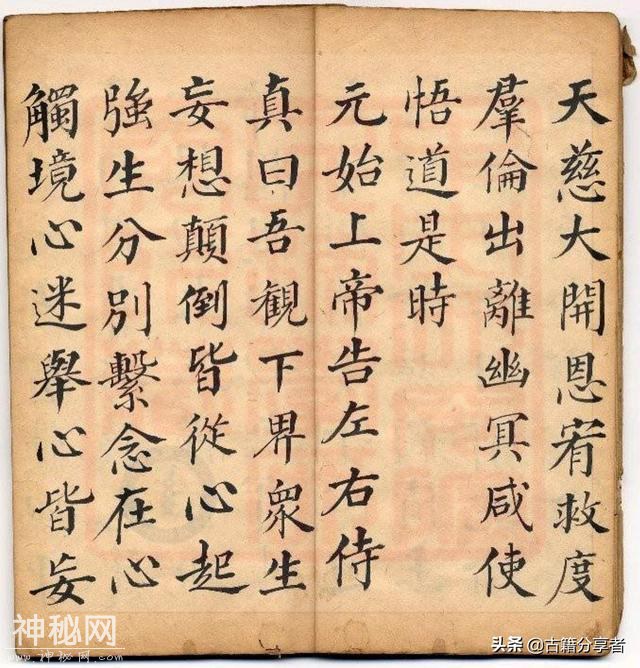 天慈大開恩宥救度
羣倫出離幽冥咸使
悟道是時
元始上帝告左右侍
真曰吾觀下界衆生
妄想顛倒皆從心起
強生分別繫念在心
觸境心迷舉心皆妄
神秘网
www.shenmiwang.com
头条 @古籍分享者